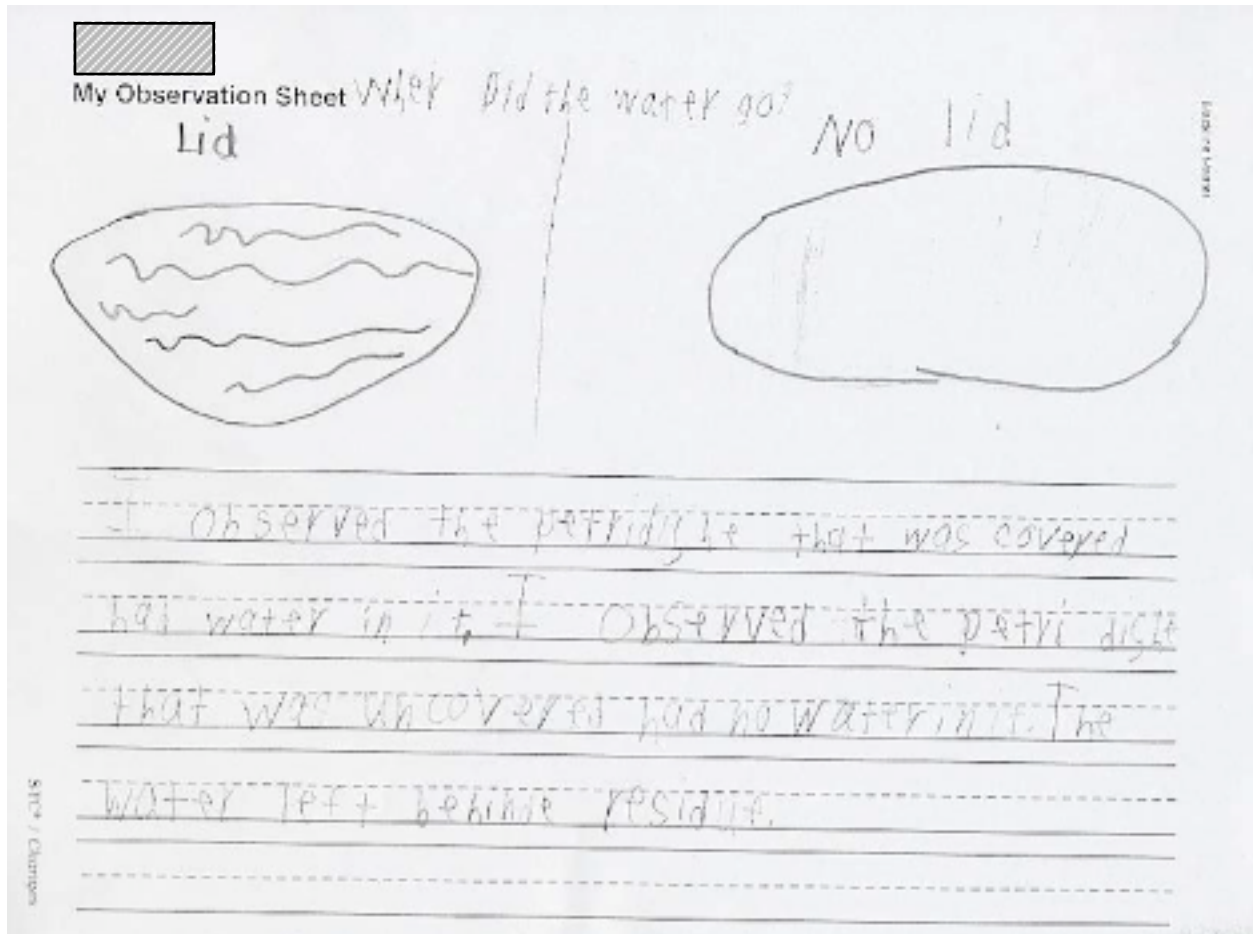 My Observation Sheet Wher Did the water go?
Lid
No lid
I observed the petridishe that was covered
had water in it. I Observed the petri dish
that was uncovered had no water in it. The
water left behinde residue.
STC® / Changes